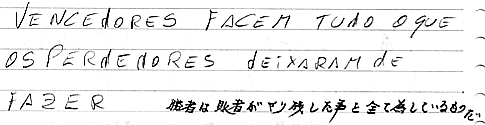 VENCEdORES FACEM TUDO O QUE
OS PERdEdORES dEIXARAM dE
FAZER 勝者は敗者がやり残した事を全て為しているものだ